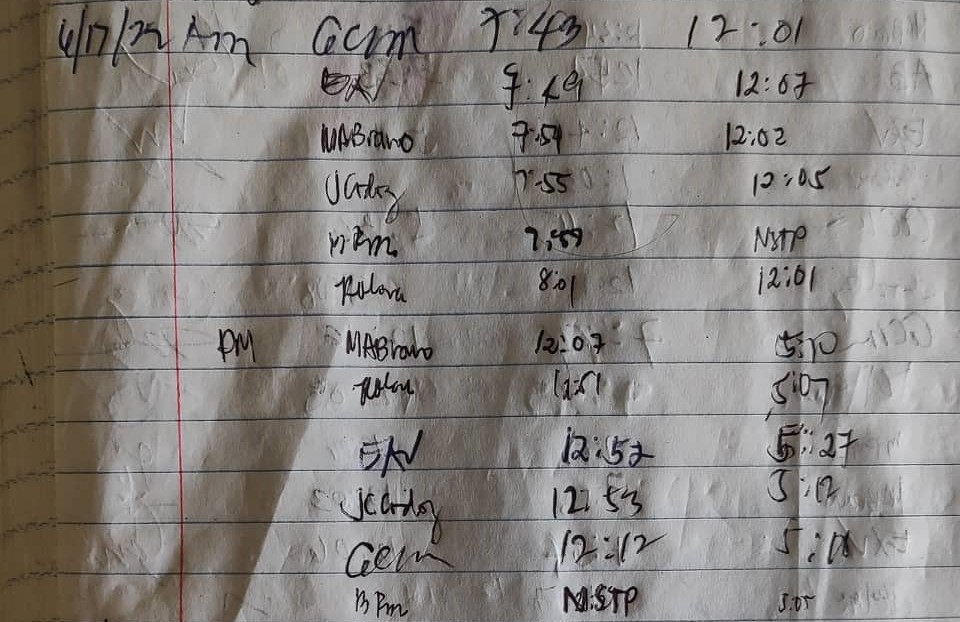 6/17/22 Am Gcm 7:43 12:01
EAV 7:49 12:07
MABravo 7:54 12:02
JCordoz 7:55 12:05
BPm 7:59 NSTP
8:01 12:01
PM MABravo 12:07 5:10
12:51 5:07
EAV 12:52 5:27
JCCordoz 12:53 5:12
Gcm 12:12 5:18
BPm NSTP 5:05